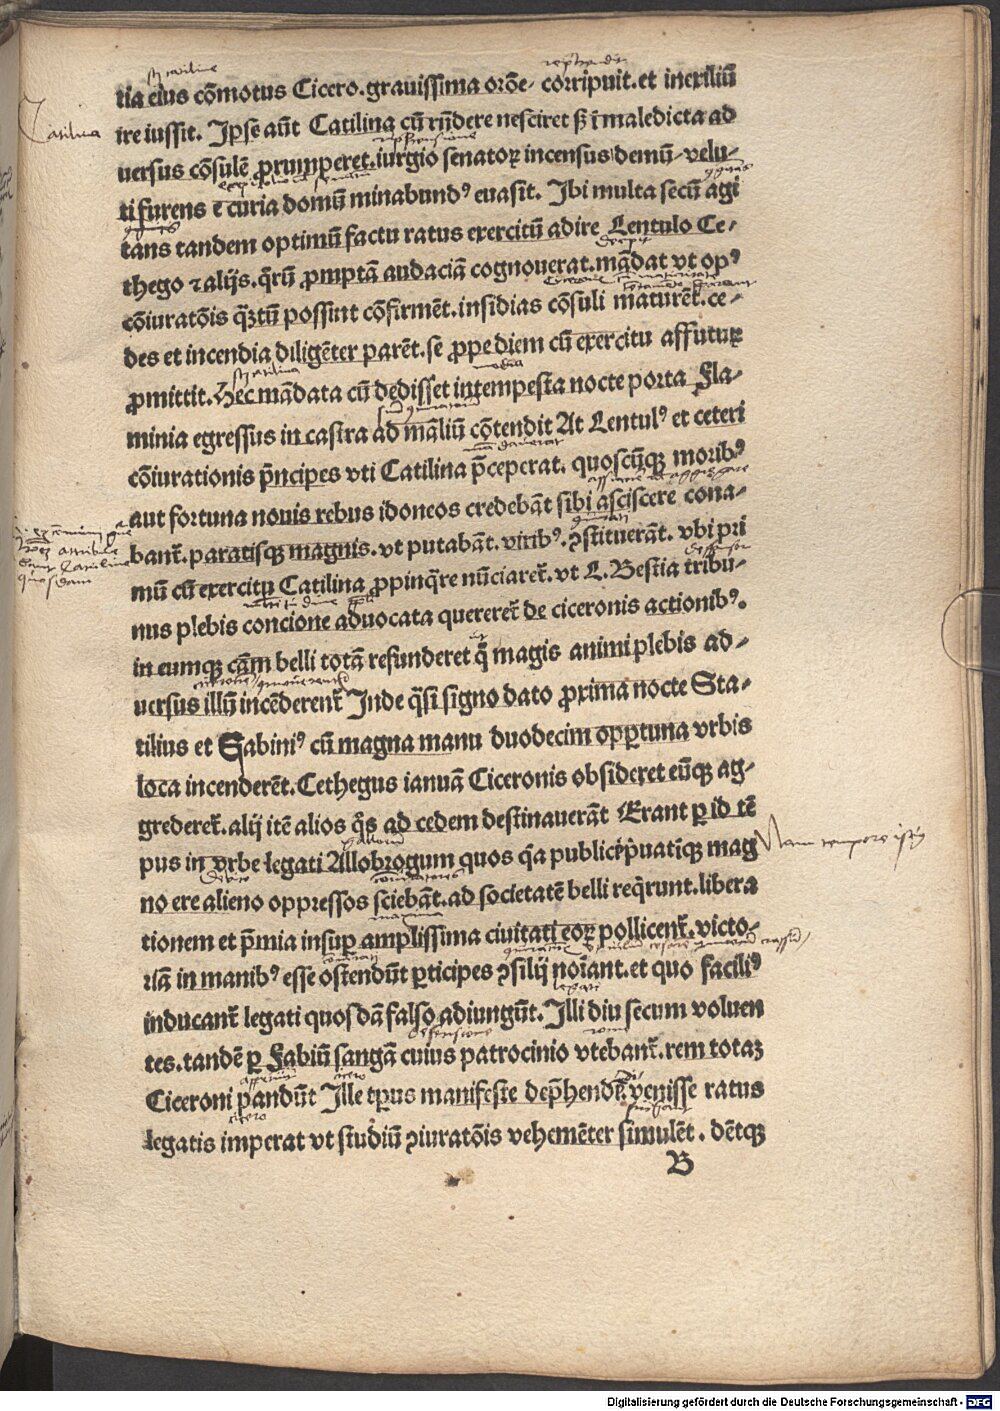 tia eius cōmotus Cicero. grauissima orōe corripuit. et inexiliū
Catilina
ire iussit. Ipse aūt Catilina cū rn̄dere nesciret ſʒ ī maledicta ad
uersus cōsulē ꝓrumperet. iurgio senatoꝝ incensus demū velu⸗
ti furens e curia domū minabundꝰ euasit. Ibi multa secū agi
tans tandem optimū factu ratus exercitū adire Lentulo Ce⸗
thego ⁊ alijs. q̄rū ꝓmptā audaciā cognouerat. mādat vt opꝰ
cōiuratōis q̄ʒtū possint cōfirmēt. insidias cōsuli maturēt. ce⸗
des et incendia diligēter parēt. se ꝓpediem cū exercitu affuturꝝ
ꝓmittit. Hec mādata cū dedisset intempesta nocte porta Fla⸗
minia egressus in castra ad māliū cōtendit At Lentulꝰ et ceteri
cōiurationis pn̄cipes vti Catilina p̄ceperat. quoscūqꝫ moribꝰ
aut fortuna nouis rebus idoneos credebāt sibi asciscere cona⸗
bant̄. paratisqꝫ magnis. vt putabāt. viribꝰ. ꝯstituerāt. vbi pri
quosdam
mū cū exercitu Catilina ꝓpinq̄re nūciaret̄. vt L. Bestia tribu⸗
nus plebis concione aduocata quereret̄ de ciceronis actionibꝰ.
in eumqꝫ cām belli totā refunderet q̄ magis animi plebis ad⸗
uersus illū incēderent̄ Inde q̄si signo dato ꝓxima nocte Sta⸗
tilius et Gabiniꝰ cū magna manu duodecim opꝑtuna vrbis
loca incenderēt. Cethegus ianuā Ciceronis obsideret eūqꝫ ag⸗
grederet̄. alij itē alios q̄s ad cedem destinauerāt Erant ꝑ id tē
Nam tempore
pus in vrbe legati Allobrogum quos q̄a publice pͥuatiqꝫ mag
no ere alieno oppressos sciebāt. ad societatē belli req̄runt. libera
tionem et p̄mia insuꝑ amplissima ciuitati eoꝝ pollicent̄. victo⸗
riā in manibꝰ esse ostendūt ꝑticipes ꝯsilij noīant. et quo faciliꝰ
inducant̄ legati quosdā falso adiungūt. Illi diu secum voluen
tes. tandē ꝑ Fabiū sangā cuius patrocinio vtebant̄. rem totaꝫ
Ciceroni pandūt Ille tp̄us manifeste dep̄hendi venisse ratus
legatis imperat vt studiū ꝯiuratōis vehemēter simulēt. dētqꝫ
B
Digitalisierung gefördert durch die Deutsche Forschungsgemeinschaft - DFG